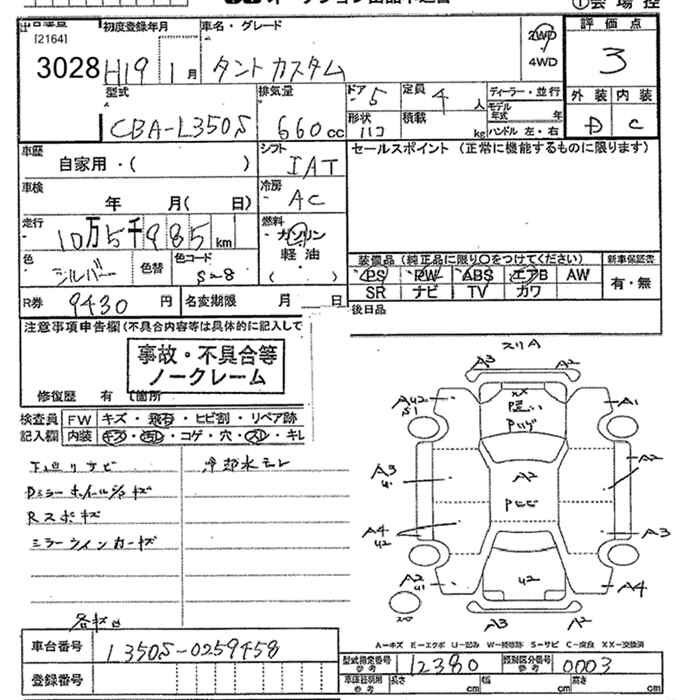 出品番号
[2164]
3028
初度登録年月
H19 1月
車名・グレード
タントカスタム
2WD
4WD
評価点
3
外装 内装
D C
型式
CBA-L350S
排気量
660cc
ドア
5
定員
4人
形状
ハコ
積載
kg
ディーラー・並行
モデル
年式 年
ハンドル 左・右
車歴
自家用・( )
シフト
IAT
セールスポイント (正常に機能するものに限ります)
車検
年 月( 日)
冷房
AC
走行
10万5千985km
燃料
ガソリン
軽油
( )
色
シルバー
色替
色コード
S28
装備品 (純正品に限り○をつけてください)
新車保証書
PS PW ABS エアB AW
SR ナビ TV カワ
有・無
R券 9430円
名変期限 月 日
後日品
注意事項申告欄(不具合内容等は具体的に記入して
事故・不具合等
ノークレーム
修復歴 有 (箇所
検査員
記入欄
FW キズ・飛石・ヒビ割・リペア跡
内装 キズ・汚れ・コゲ・穴・スレ・キレ
下廻りサビ
冷却水モレ
Dミラーホイールジョキズ
Rスポキズ
ミラーウインカーキズ
スリA
A3 A2
AU2
S1
A1
A3
A2
A2
A4
U2
A3
A2
U1
U2
A4
A3 A2
A-キズ E-エクボ U-凹み W-補修跡 S-サビ C-腐食 XX-交換済
車台番号
L350S-0259458
登録番号
型式指定番号
参考
12380
類別区分番号
参考
0003
車体証明用
参考
長さ cm
幅 cm
高さ cm